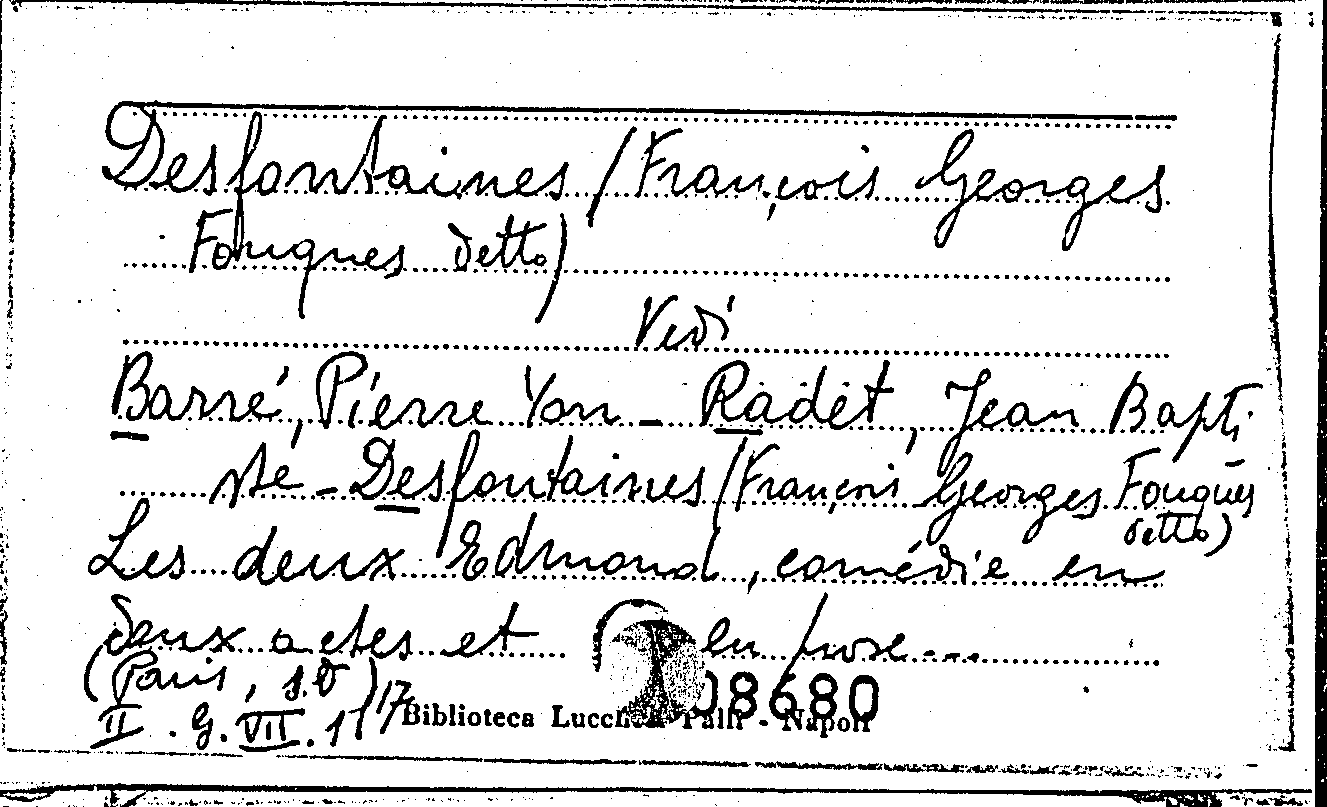 Desfontaines (François Georges
Fouques detto)
Vedi
Barré, Pierre Yon - Radet, Jean Bapti
ste - Desfontaines (François Georges Fouques
detto)
Les deux Edmond, comédie en
deux actes et en prose...
(Paris, s.d)
II. G. VII. 11/17
08680
Biblioteca Lucchesi Palli - Napoli